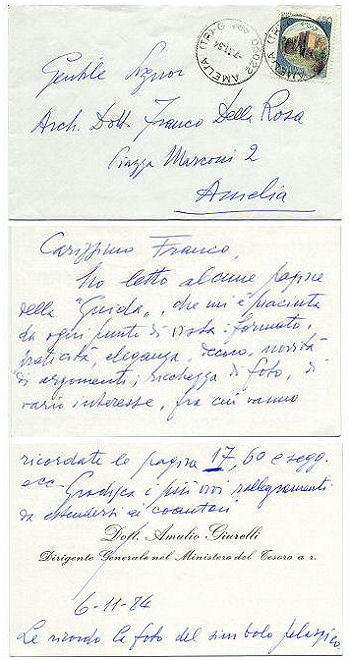 05022 AMELIA (TR)
AMELIA (TR)
Gentile Signor
Arch. Dott. Franco Della Rosa
Piazza Marconi 2
Amelia
Carissimo Franco,
ho letto alcune pagine
della "Guida", che mi è piaciuta
da ogni punto di vista: formato,
praticità, eleganza, decoro, novità
di argomenti, ricchezza di foto, di
vario interesse, fra cui vanno
ricordate le pagine 17, 60 e segg.
ecc. Gradisca i più vivi rallegramenti
da estendersi ai coautori.
Dott. Amulio Giurelli
Dirigente Generale nel Ministero del Tesoro a r.
6-11-84
Le ricordo la foto del simbolo pelasgico